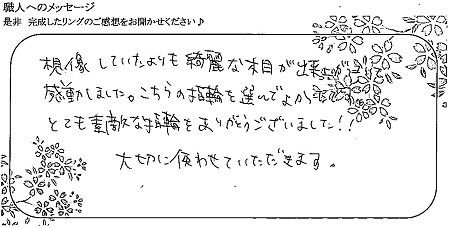 職人へのメッセージ
是非 完成したリングのご感想をお聞かせください♪
想像していたよりも綺麗な木目が出来上がって
感動しました。こちらの指輪を選んでよかったです。
とても素敵な指輪をありがとうございました!!
大切に使わせていただきます。